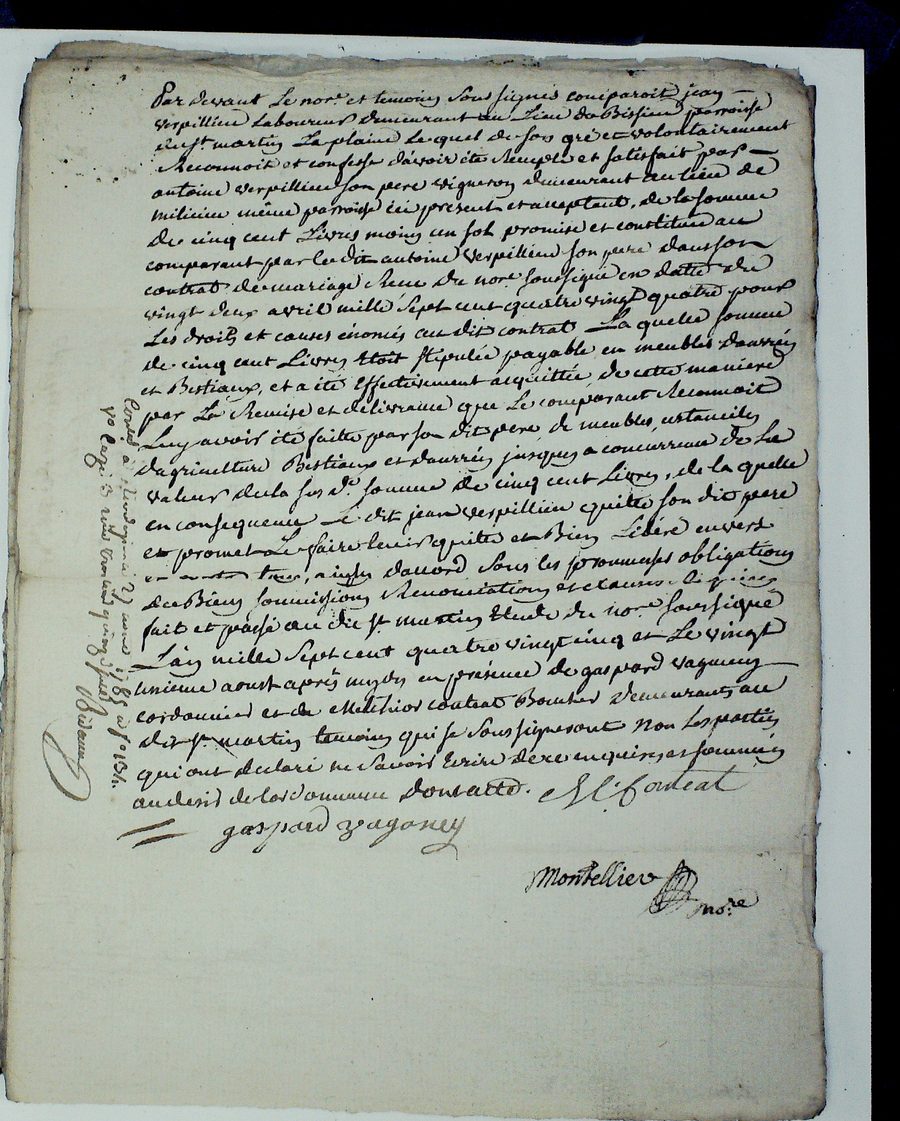 Par devant Le nore et temoins Sous signés comparoit jean
verpillieu Laboureur demeurant au Lieu de Bissieu parroisse
de st martin La plaine Le quel de son gré et volontairement
Reconnoit et confesse d'avoir été Remply et satisfait par
antoine verpillieu son pere vigneron demeurant au lieu de
milieu même parroisse ici present et acceptant, de la somme
de cinq cent Livres moins un sol promise et constituée au
comparant par le dit antoine verpillieu son pere dans son
contrat de mariage Recu du nore soussigné en datte du
vingt deux avril mille Sept cent quatre vingt quatre pour
Les droits et causes énoncés au dit contrat La quelle somme
de cinq cent Livres étoit stipulée payable en meubles danrées
et Bestiaux, et a été Effectivement acquittée de cette maniere
par La Remise et delivrance que Le comparant Reconnoit
Luy avoir été faite par son dit pere de meubles, ustanciles
d'agriculture Bestiaux et danrrées jusques a concurrence de La
valeur de la sus de somme de cinq cent Livres, de la quelle
en consequence Le dit jean verpillieu quitte son dit pere
et promet Le faire tenir quitte et Bien Libéré envers
et contre tous, ainsy d'accord sous les promesses obligations
de Biens soumissions Renonciations et clauses Requises
fait et passé au dit st martin Etude du nore soussigné
L'an mille Sept cent quatre vingt cinq et Le vingt
unieme aoust après midy en présence de gaspard vaganey
cordonnier et de Melchior contrat Boucher demeurants au
dit st martin temoins qui se Soussigneront non Les parties
qui ont declaré ne Savoir Ecrire de ce enquises et sommées
au desir de l'ordonnance Dont acte. M. Contrat
gaspard vaganey
Montellier
nore
Conlé a Rivedegier le 27 aoust 1785 fo 131.
vo Case 3 Recu trois Livres quinze sous